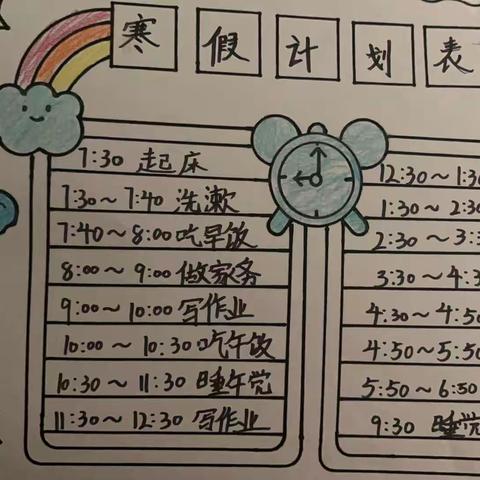 寒假计划表
7:30 起床
7:30～7:40 洗漱
7:40～8:00 吃早饭
8:00～9:00 做家务
9:00～10:00 写作业
10:00～10:30 吃午饭
10:30～11:30 睡午觉
11:30～12:30 写作业
12:30～1:30
1:30～2:30
2:30～3:3
3:30～4:3
4:30～4:50
4:50～5:50
5:50～6:50
9:30 睡觉